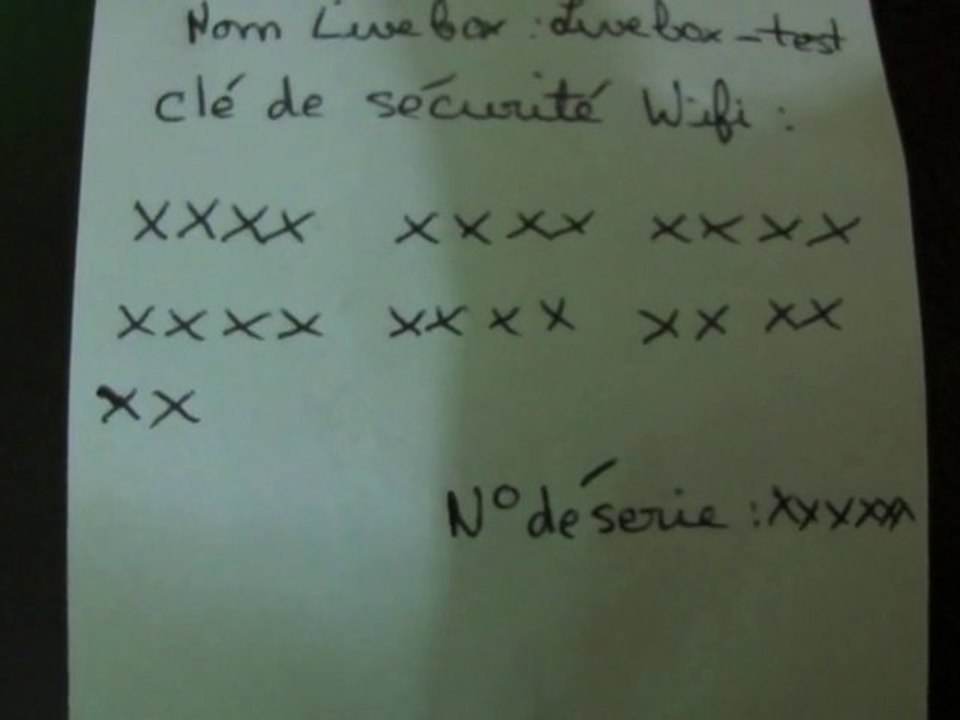 Nom Livebox : Livebox-test
clé de sécurité Wifi :
XXXX XXXX XXXX
XXXX XXXX XX XX
XX
N° de série : xxxxxx